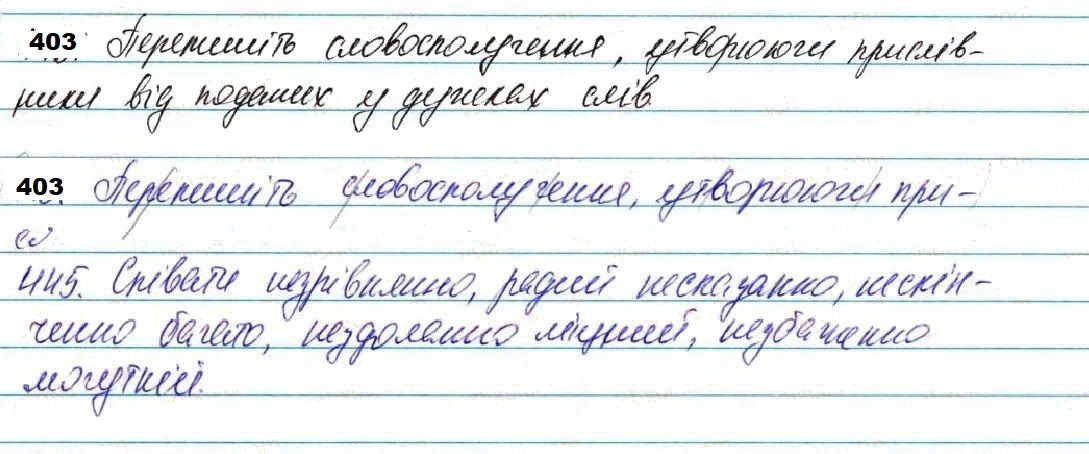 403 Перепишіть словосполучення, утворюючи прислів-
ники від поданих у дужках слів.
403 Перепишіть словосполучення, утворюючи при-
сл
445. Співати незрівнянно, радий несказанно, нескін-
ченно багато, нездоланно міцний, незбагненно
могутній.